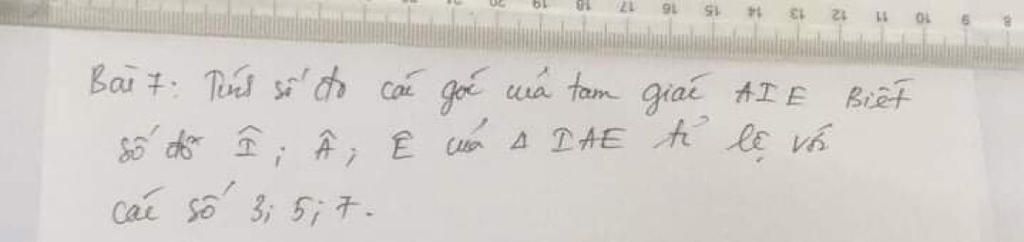 20 19 18 17 16 15 14 13 12 11 10 9 8
Bài 7: Tính số đo các góc của tam giác AIE Biết
số đo Î; Â; Ê của Δ IAE tỉ lệ với
các số 3; 5; 7.